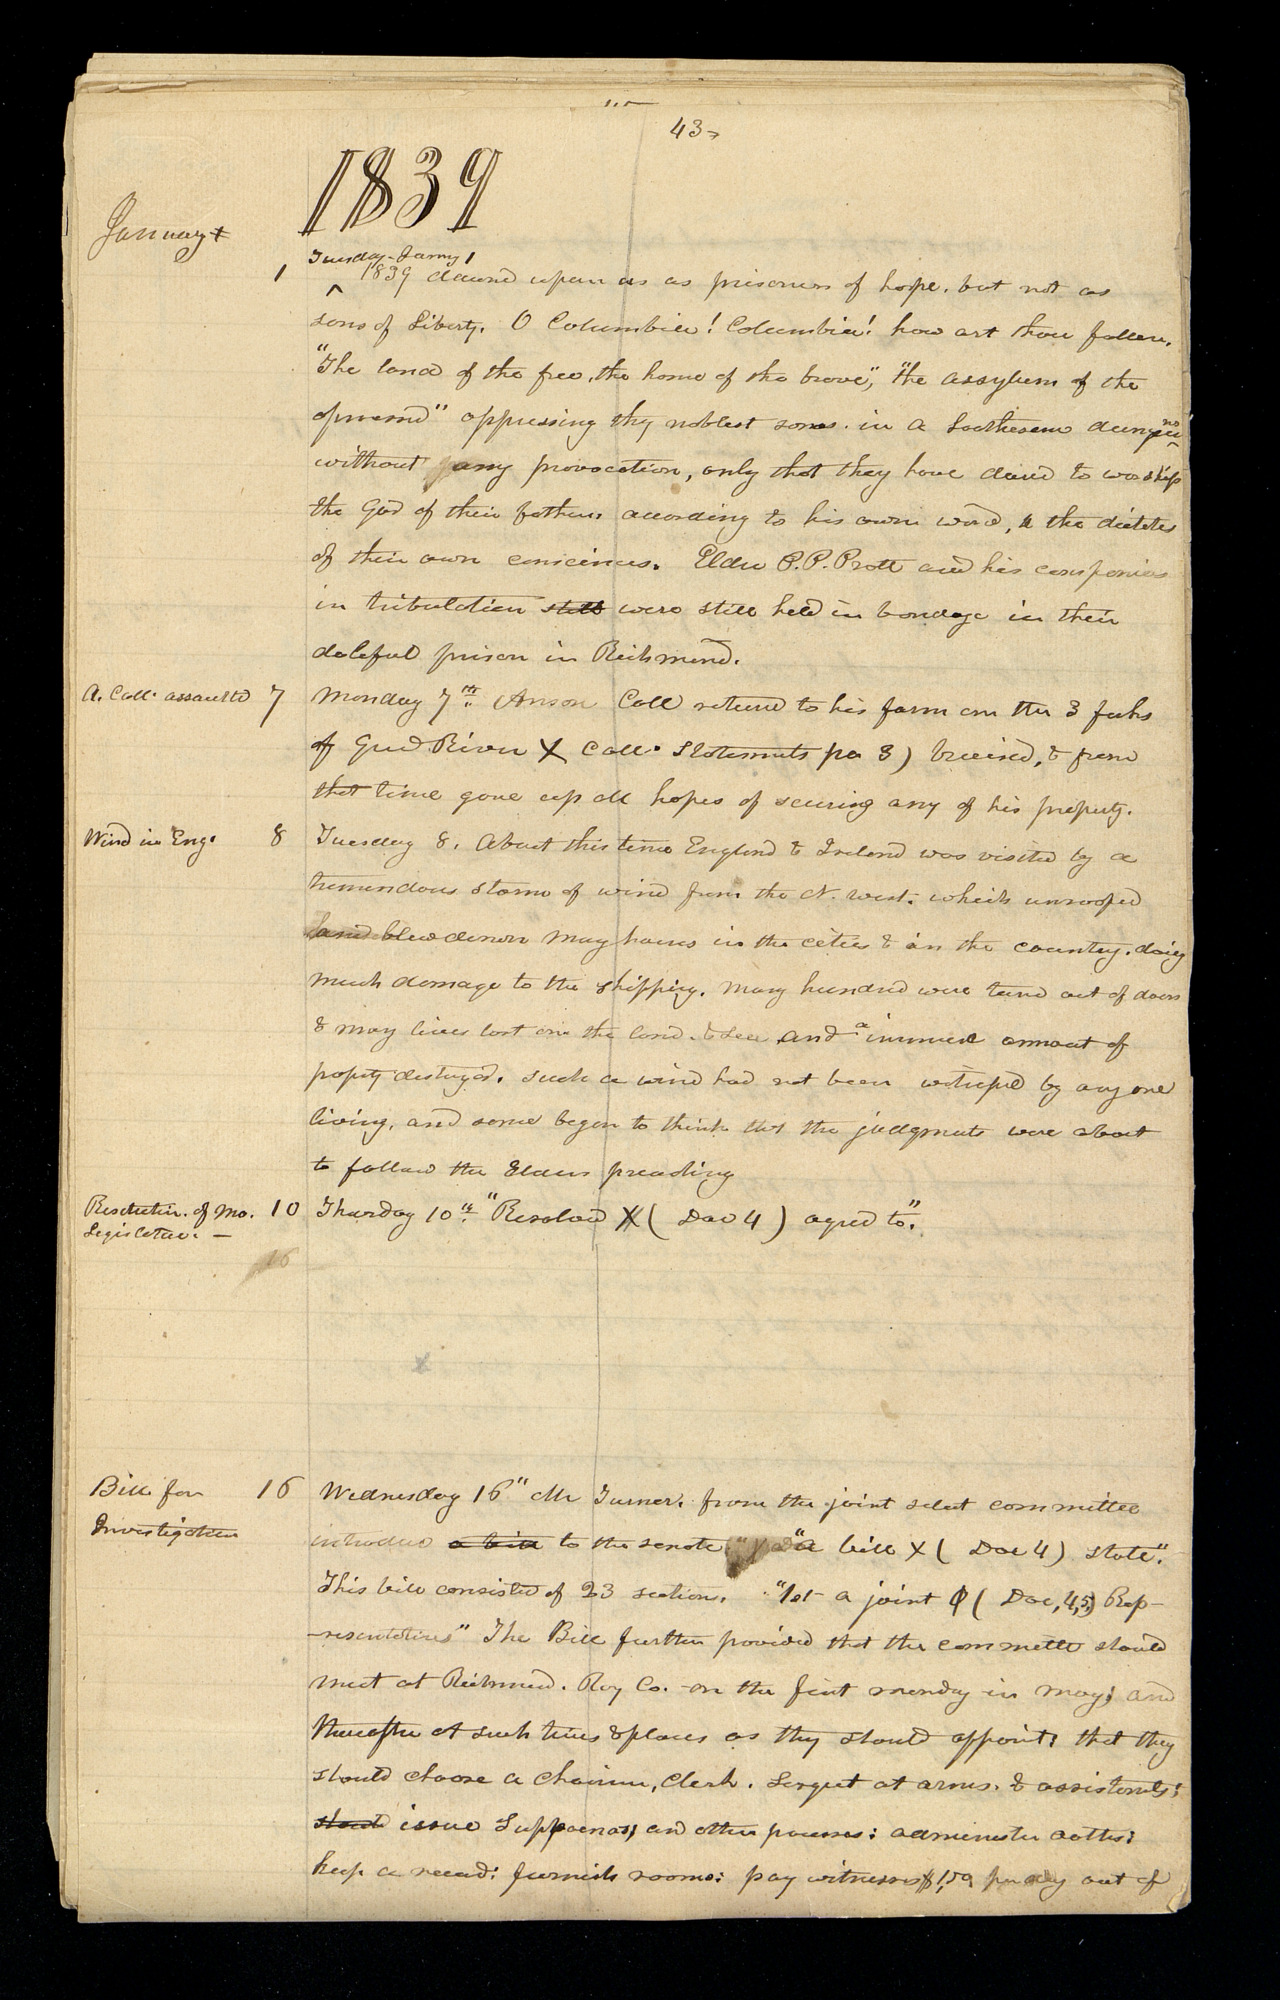 43
1839
January
Tuesday– Jany 1
1 1839 dawned upon us as prisoners of hope. but not as
sons of Liberty. O Columbia! Columbia! how art thou fallen.
"The land of the free, the home of the brave", "the assylum of the
oppressed" oppressing thy noblest sons. in a loathesome dungeon
without any provocation, only that they have dared to worship
the God of their fathers according to his own word, & the dictates
of their own consciences. Elder P. P. Pratt and his companions
in tribulation still were still held in bondage in their
doleful prison in Richmond.
A. Call. assaulted 7 Monday 7th. Anson Call returned to his farm on the 3 forks
of Grand River X Call. Statements pa 3) bruised, & from
that time gave up all hopes of securing any of his property.
Wind in Eng. 8 Tuesday 8. About this time England & Ireland was visited by a
tremendous storm of wind from the N. west. which unroofed
and blew down many houses in the cities & in the country. doing
much damage to the shipping. Many hundred were turned out of doors
& many lives lost on the land. & sea and a immense amount of
property destroyed. such a wind had not been witnessed by any one
living, and some began to think that the judgments were about
to follow the Elders preaching
Resolution. of Mo. 10 Thursday 10th. "Resolved X ( Doc 4 ) agreed to".
Legislature. –
16
Bill for 16 Wednesday 16" Mr Turner. from the joint select committee
Investigation introduced a bill to the senate. "a bill X ( Doc 4) state".
This bill consisted of 23 sections. "1st a joint φ ( Doc, 4,5,) Rep-
-resentatives" The Bill further provided that the committee should
meet at Richmond. Ray Co. on the first monday in may; and
thereafter at such times & places as they should appoint; that they
should choose a chairman, Clerk. Sergeant at arms. & assistants;
should issue Suppoenas; and other processes: administer oaths:
keep a record: furnish rooms: pay witnesses $1,50 per day out of